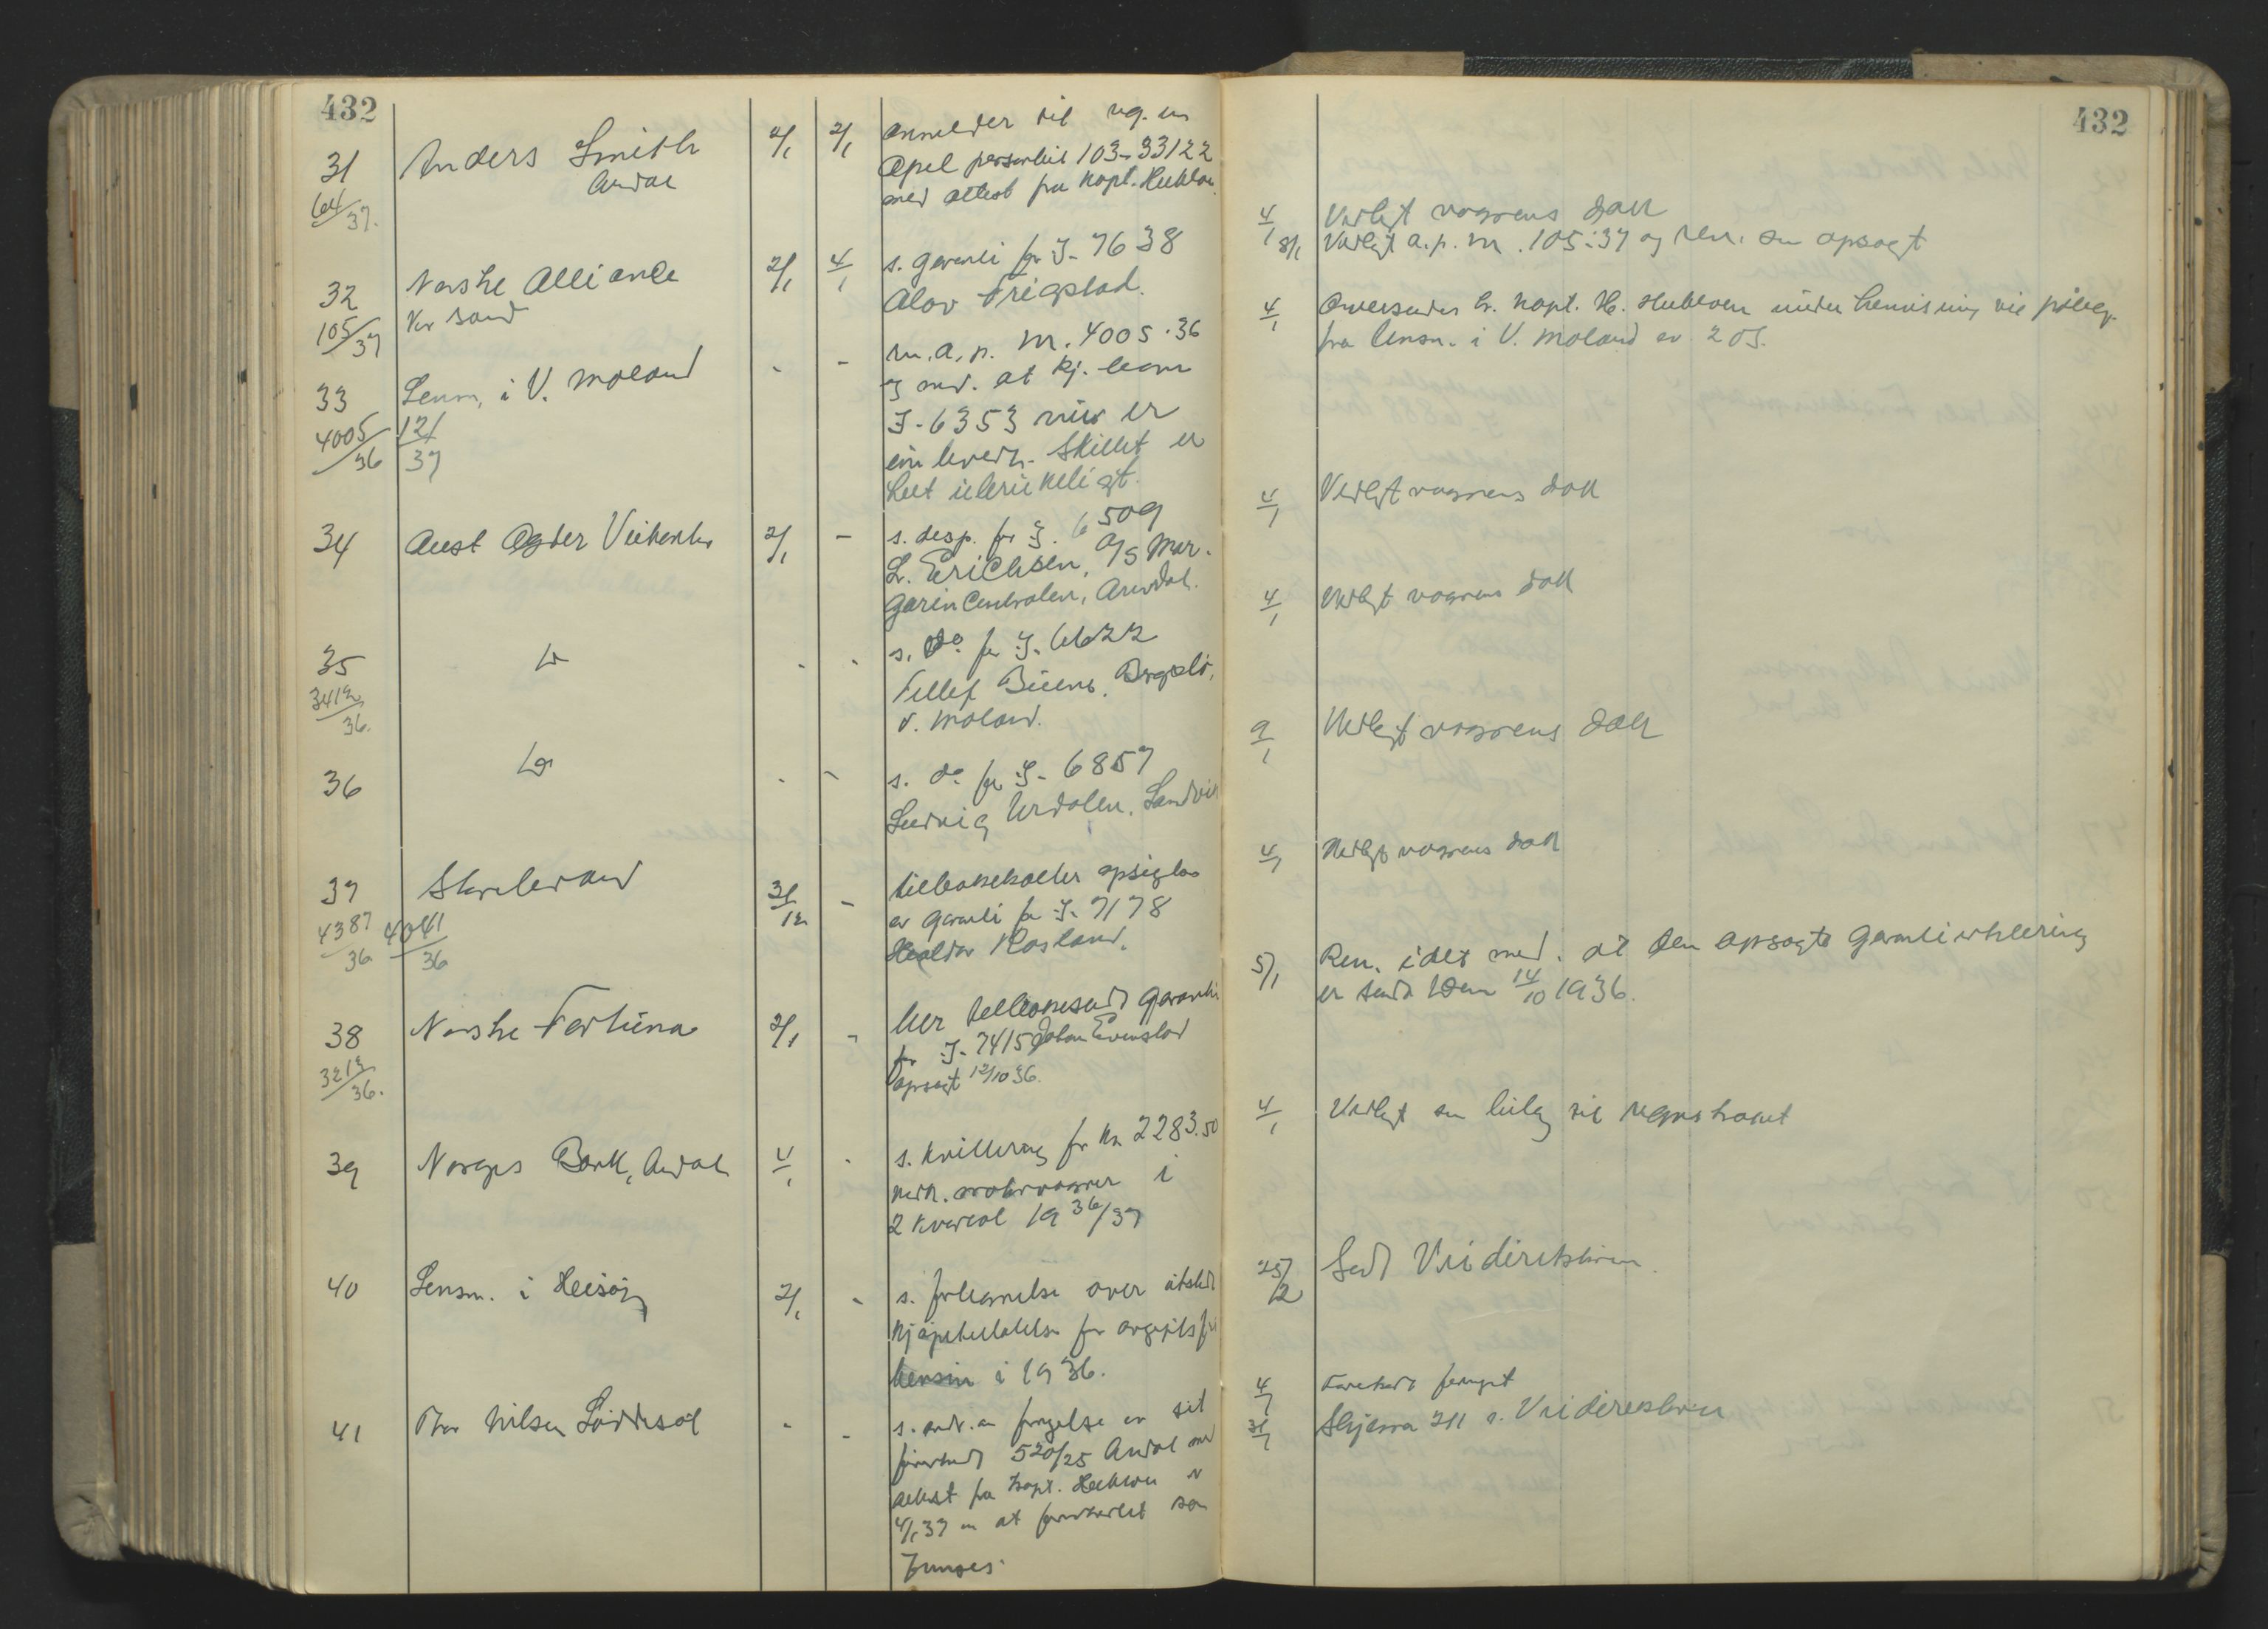 432
31
64/37.
Anders Smith
Ardal
2/1 2/1
anmelder til reg. en
Opel personbil 103-33122
med attest fra kapt. Hublou.
32
105/37
Norske Alliance
Kr sand
2/1 4/1
s. garanti for I-7638
Olav Frigstad.
33
4005/36
Lensm. i V. Moland
121/37
- -
m. a. p. nr. 4005.36
og med. at kj. leom
I-6353 nu er
innleverh. Skiltet er
helt ubrukeligt.
34
Aust Agder Veikontor
2/1 -
s. desp. for I. 6509
L. Erichsen, A/S Mar-
garincentralen, Arendal.
35
3412/36.
Do
- -
s. do. for I. 6622
Tellef Buene, Bergsli,
V. Moland.
36
Do
- -
s. do. for I- 6857
Ludvig Urdalen. Landvik
37
4387/36
4041/36
Storebrand
31/12 -
tilbakekaller opsigelse
av garanti for I. 7178
Haldor Rosland.
38
3213/36.
Norske Fortuna
2/1 -
ber tilbakesendt garanti
for I- 7415 Johan Evenstad
opsagt 12/10 36.
39
Norges Bank, Ardal
4/1 -
s. kvittering for kr 2283.50
vedr. motorvogner i
2 kvartal 1936/37
40
Lensm. i Hisøy
2/1 -
s. fortegnelse over utstedt
kjøpetillatelse for avgiftsfri
bensin i 1936.
41
Thor Nilsen Løddesøl
- -
s. om fornyelse av sit
førerkort 520/25 Ardal med
attest fra kapt. Hublou
4/1 37 om at førerkortet kan
fornyes.
432
4/1 Vedlagt vognens dok
8/1 Vedlagt a. p. nr. 105.37 og ren. som opsagt
4/1 Oversendes hr. kapt. H. Hubloum under henvisning til påteg.
fra lensm. i V. Moland av 2 ds.
4/1 Vedlagt vognens dok
4/1 Vedlagt vognens dok
9/1 Vedlagt vognens dok
4/1 Vedlagt vognens dok
5/1 Ren. idet med. at den opsagte garantierklæring
er sendt Dem 14/10 1936.
4/1 Vedlagt som bilag til regnskapet
25/2 Sendt Veidirektøren.
4/1 Førerkort fornyet
31/1 Skjema 211 s. Veidirektøren